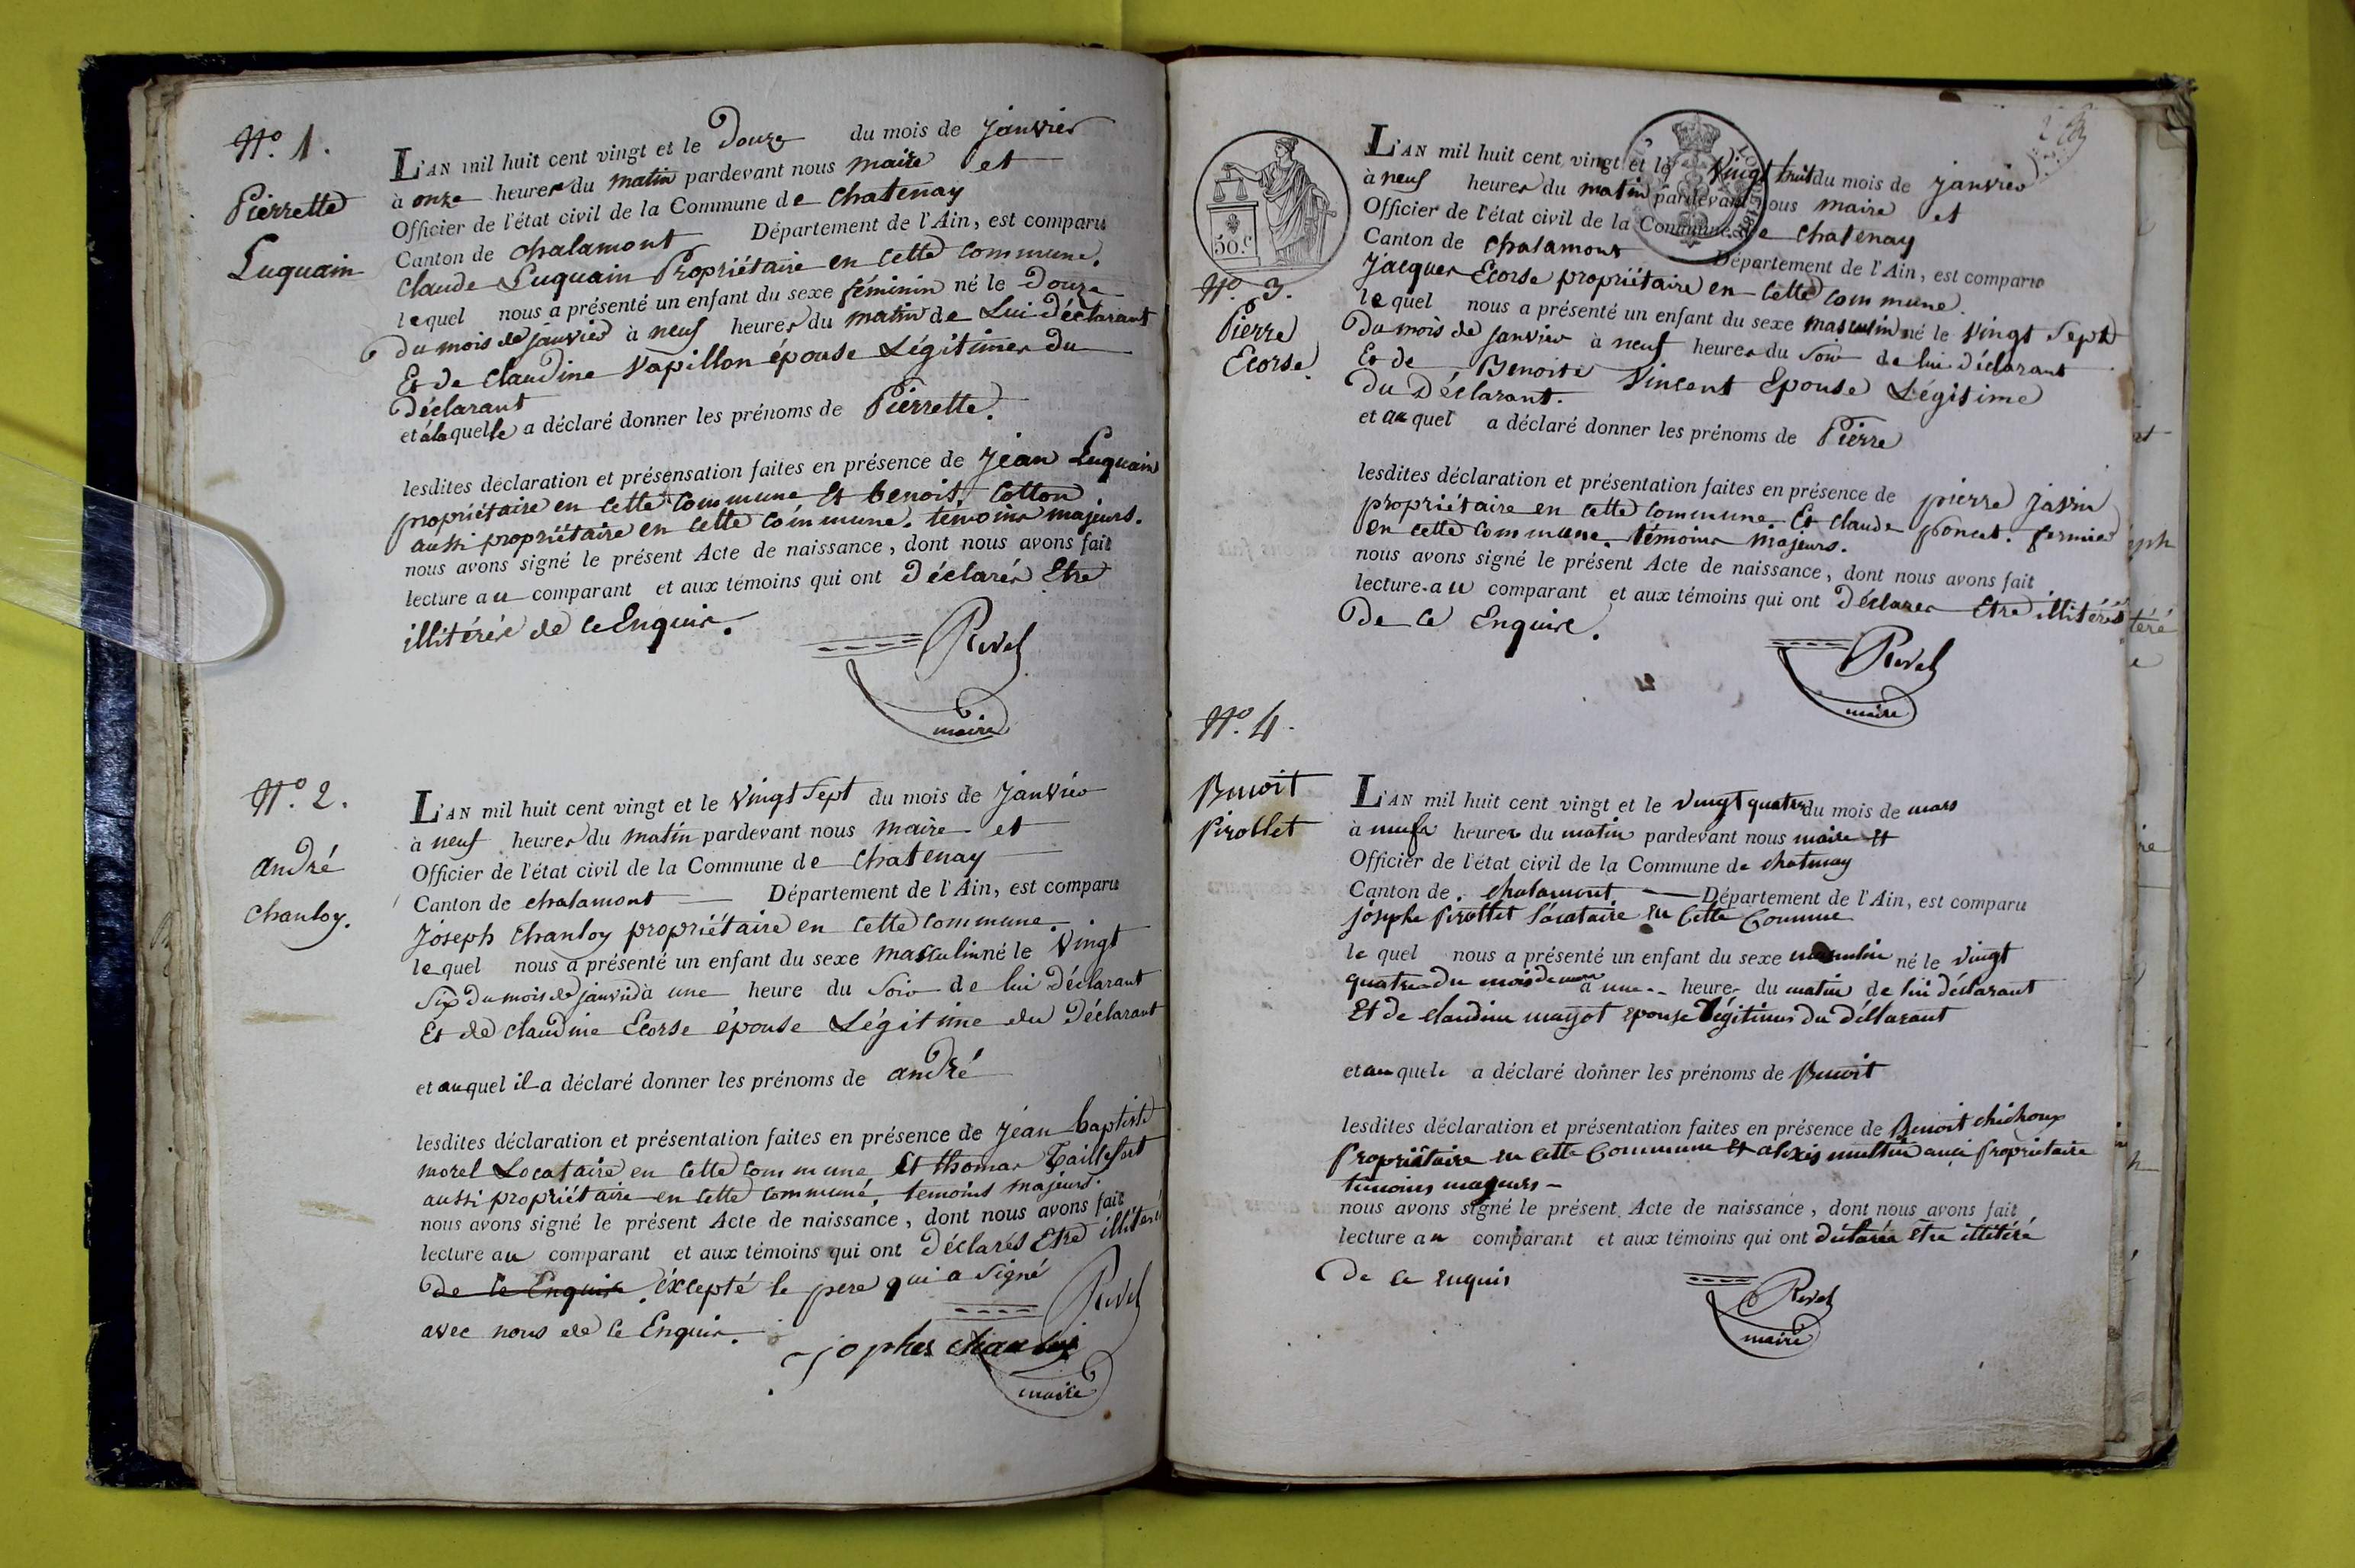 N.º 1.
Pierrette
Luquain
L'AN mil huit cent vingt et le Douze du mois de janvier
à onze heures du matin pardevant nous maire et
Officier de l'état civil de la Commune de chatenay
Canton de chalamont Département de l'Ain, est comparu
claude Luquain Propriétaire en cette commune.
lequel nous a présenté un enfant du sexe féminin né le Douze
Du mois de janvier à neuf heures du matin de Lui Déclarant
Et de claudine Vapillon épouse Légitimes du
Déclarant
et à laquelle a déclaré donner les prénoms de Pierrette.
lesdites déclaration et présensation faites en présence de jean Luquain
propriétaire en cette commune Et benoit Cotton
aussi propriétaire en cette commune. témoins majeurs.
nous avons signé le présent Acte de naissance, dont nous avons fait
lecture au comparant et aux témoins qui ont Déclarés Etre
illitérés de ce Enquis.
Revel
maire
N.º 2.
andré
chanloy.
L'AN mil huit cent vingt et le Vingt Sept du mois de janvier
à neuf heures du matin pardevant nous maire et
Officier de l'état civil de la Commune de chatenay
Canton de chalamont Département de l'Ain, est comparu
Joseph chanloy propriétaire en cette commune.
lequel nous a présenté un enfant du sexe masculin né le Vingt
Six Du mois de janvier à une heure du Soir de lui Déclarant
Et de claudine Ecorse épouse Légitime du Déclarant
et auquel il a déclaré donner les prénoms de andré
lesdites déclaration et présentation faites en présence de jean baptiste
morel Locataire en cette commune Et thomas Taillefert
aussi propriétaire en cette commune. temoins majeurs.
nous avons signé le présent Acte de naissance, dont nous avons fait
lecture au comparant et aux témoins qui ont Déclarés Etre illitéré
De ce Enquis excepté le pere qui a Signé
avec nous de ce Enquis.
Revel
maire
50 c
L'AN mil huit cent vingt et le Vingt huit du mois de janvier
à neuf heures du matin pardevant nous maire et
Officier de l'état civil de la Commune de chatenay
Canton de chalamont Département de l'Ain, est comparu
N.º 3.
Pierre
Ecorse.
Jacques Ecorse propriétaire en cette commune.
lequel nous a présenté un enfant du sexe masculin né le Vingt Sept
Du mois de janvier à neuf heures du Soir de lui Déclarant
Et de Benoite Vincent Epouse Légitime
Du Déclarant.
et auquel a déclaré donner les prénoms de Pierre
lesdites déclaration et présentation faites en présence de pierre
propriétaire en cette commune. Et claude poncet. fermier
en cette commune. témoins majeurs.
nous avons signé le présent Acte de naissance, dont nous avons fait
lecture au comparant et aux témoins qui ont Déclarer Etre illitérés
De ce Enquise.
Revel
maire
N.º 4.
Benoit
Pirollet
L'AN mil huit cent vingt et le Vingt quatre du mois de mars
à neufs heures du matin pardevant nous maire et
Officier de l'état civil de la Commune de chatenay
Canton de chalamont Département de l'Ain, est comparu
joseph Pirollet locataire en cette Commune
le quel nous a présenté un enfant du sexe masculin né le Vingt
quatre Du mois de mars à une heures du matin de lui déclarant
Et de claudine epouse légitimes du déclarant
et au quele a déclaré donner les prénoms de Benoit
lesdites déclaration et présentation faites en présence de Benoit chichoux
Propriétaire en cette Commune et alexis aussi Propriétaire
temoins majeurs
nous avons signé le présent Acte de naissance, dont nous avons fait
lecture au comparant et aux témoins qui ont déclarés être illitéré
De ce enquis
Revel
maire